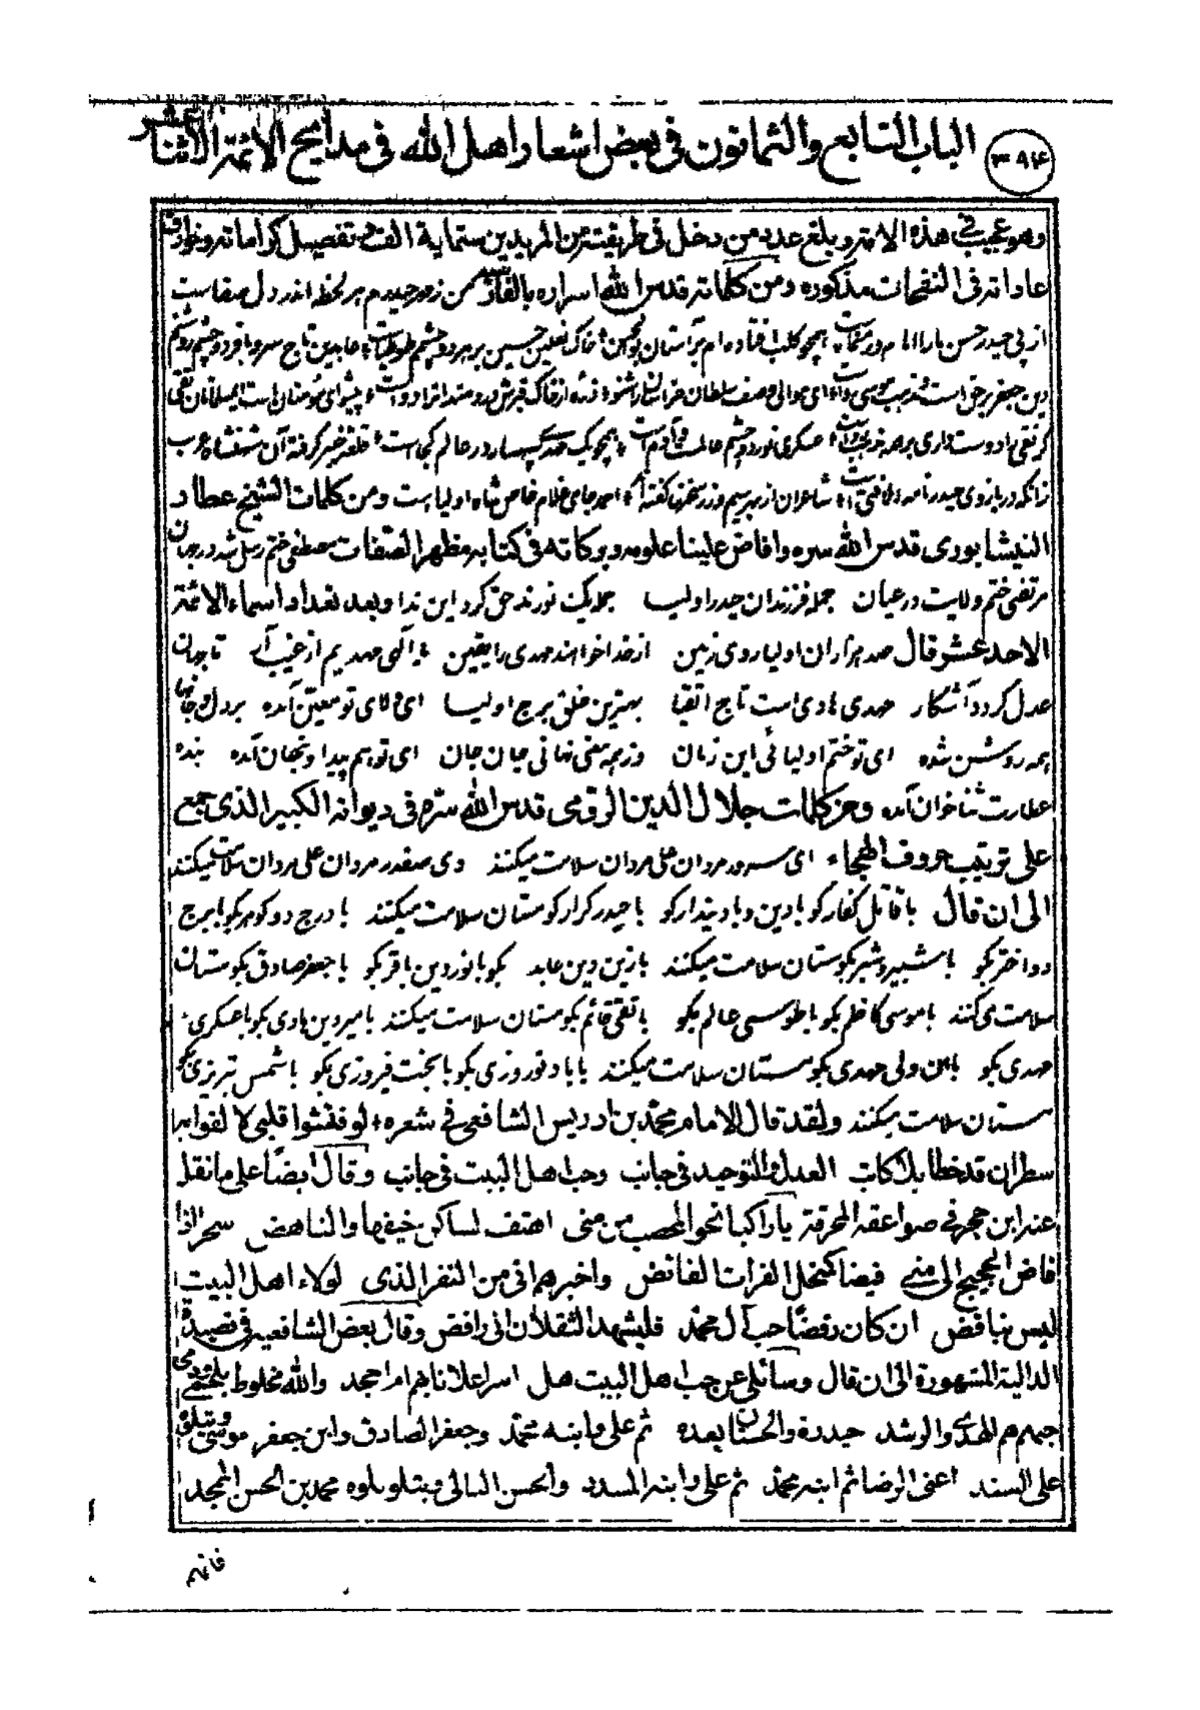 ٣٩٤ الباب السابع والثمانون فى بعض اشعار اهل الله فى مدايح الائمة الاثنا عشر
وهو عجيب فى هذه الامة وبلغ عدد من دخل فى طريقته من المريدين ستماية الف وتفصيل كراماته وخوارق
عاداته فى النفحات مذكوره ومن كلماته قدس الله اسراره بالفارسية من زمهر حيدرم هر لحظه اندر دل صفاست
از پى حيدر حسن مارا امام ورهنماست همچو كلب افتاده ام بر آستان بوالحسن خاك نعلين حسين بر هر دو چشمم توتياست عابدين تاج سر وباقر دو چشم روشنم
دين جعفر برحق است ومذهب موسى رواست اى موالى وصف سلطان خراسان را شنو ذره از خاك قبرش دردمندانرا دواست پيشواى مؤمنان است اى مسلمانان تقى
گر نقى را دوست دارى بر همه مذهب رواست عسكرى نور دو چشم عالمست وآدم است همچو يك مهدى سپهسالار در عالم كجاست قلعه خيبر گرفته آن شهنشاه عرب
زانكه در بازوى حيدر نامه الا فتى است شاعران از بهر سيم وزر سخنها گفته اند احمد جامى غلام خاص شاه اولياست ومن كلمات الشيخ عطار
النيشابورى قدس الله سره وافاض علينا علومه وبركاته فى كتابه مظهر الصفات مصطفى ختم رسل شد در جهان
مرتضى ختم ولايت در عيان جمله فرزندان حيدر اوليا جمله يك نورند حق كرد اين ندا وبعد تعداد اسماء الائمة
الاحد عشر قال صد هزاران اوليا روى زمين از خدا خواهند مهدى را يقين يا الهى مهديم از غيب آر تا جهان
عدل گردد آشكار مهدى هادى است تاج اتقيا بهترين خلق برج اوليا اى ولاى تو معين آمده بر دل وجانها
همه روشن شده اى تو ختم اوليائى اين زمان وز همه معنى نهانى جان جان اى تو هم پيدا وپنهان آمده بنده
عطارت ثناخوان آمده ومن كلمات جلال الدين الرومى قدس الله سره فى ديوانه الكبير الذى جمع
على ترتيب حروف الهجاء اى سرور مردان على مردان سلامت ميكنند وى صفدر مردان على مردان سلامت ميكنند
الى ان قال با قاتل كفار گو با دين وبا ديندار گو با حيدر كرار گو مستان سلامت ميكنند با درج دو گوهر بگو با برج
دو اختر بگو با شبير وشبر بگو مستان سلامت ميكنند با زين دين عابد بگو با نور دين باقر بگو با جعفر صادق بگو مستان
سلامت مى كنند با موسى كاظم بگو با طوسى عالم بگو با تقى قائم بگو مستان سلامت ميكنند با مير دين هادى بگو با عسكرى
مهدى بگو با ان ولى مهدى بگو مستان سلامت ميكنند با باد نوروزى بگو با بخت فيروزى بگو با شمس تبريزى بگو
مستان سلامت ميكنند ولقد قال الامام محمد بن ادريس الشافعى فى شعره لو فتشوا قلبى لالفوا به
سطران قد خطا بلا كاتب العدل والتوحيد فى جانب وحب اهل البيت فى جانب وقال ايضا على ما نقل
عنه ابن حجر فى صواعقه المحرقة يا راكبا نحو المحصب من منى اهتف لساكن خيفها والناهض سحرا اذا
فاض الحجيج الى منى فيضا كنحل الفرات الفائض واخبرهم انى من النفر الذى لولاء اهل البيت
ليس بناقض ان كان رفضا حب آل محمد فليشهد الثقلان انى رافض وقال بعض الشافعية فى قصيدة
الدالية المشهورة الى ان قال وسائلى عن حب اهل البيت هل اسر اعلانا بهم ام اجحد والله مخلوط بلحمى ودمى
حبهم هم الهدى والرشد حيدرة والحسنان بعده ثم على وابنه محمد وجعفر الصادق وابن جعفر موسى ويتلوه
على السند اعنى الرضا ثم ابنه محمد ثم على وابنه المسدد والحسن التالى ويتلو تلوه محمد بن الحسن الممجد
فانهم